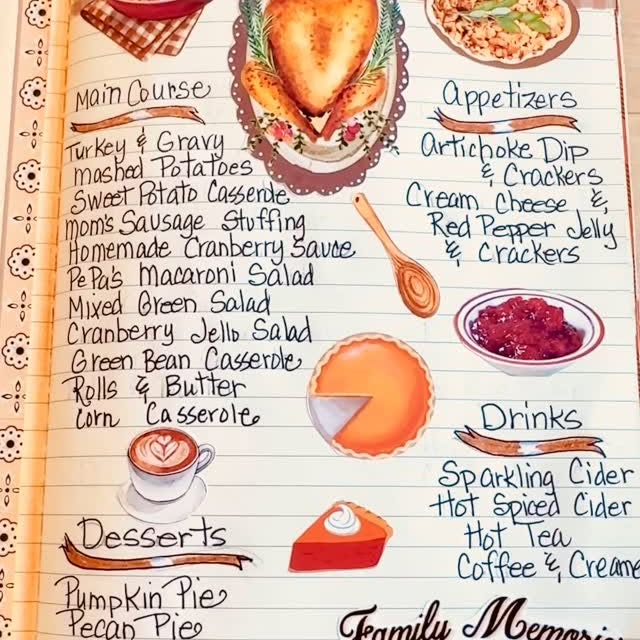 Main Course
Turkey & Gravy
Mashed Potatoes
Sweet Potato Casserole
Mom's Sausage Stuffing
Homemade Cranberry Sauce
PePa's Macaroni Salad
Mixed Green Salad
Cranberry Jello Salad
Green Bean Casserole
Rolls & Butter
Corn Casserole
Desserts
Pumpkin Pie
Pecan Pie
Appetizers
Artichoke Dip
& Crackers
Cream Cheese &
Red Pepper Jelly
& Crackers
Drinks
Sparkling Cider
Hot Spiced Cider
Hot Tea
Coffee & Creame
Family Memorie